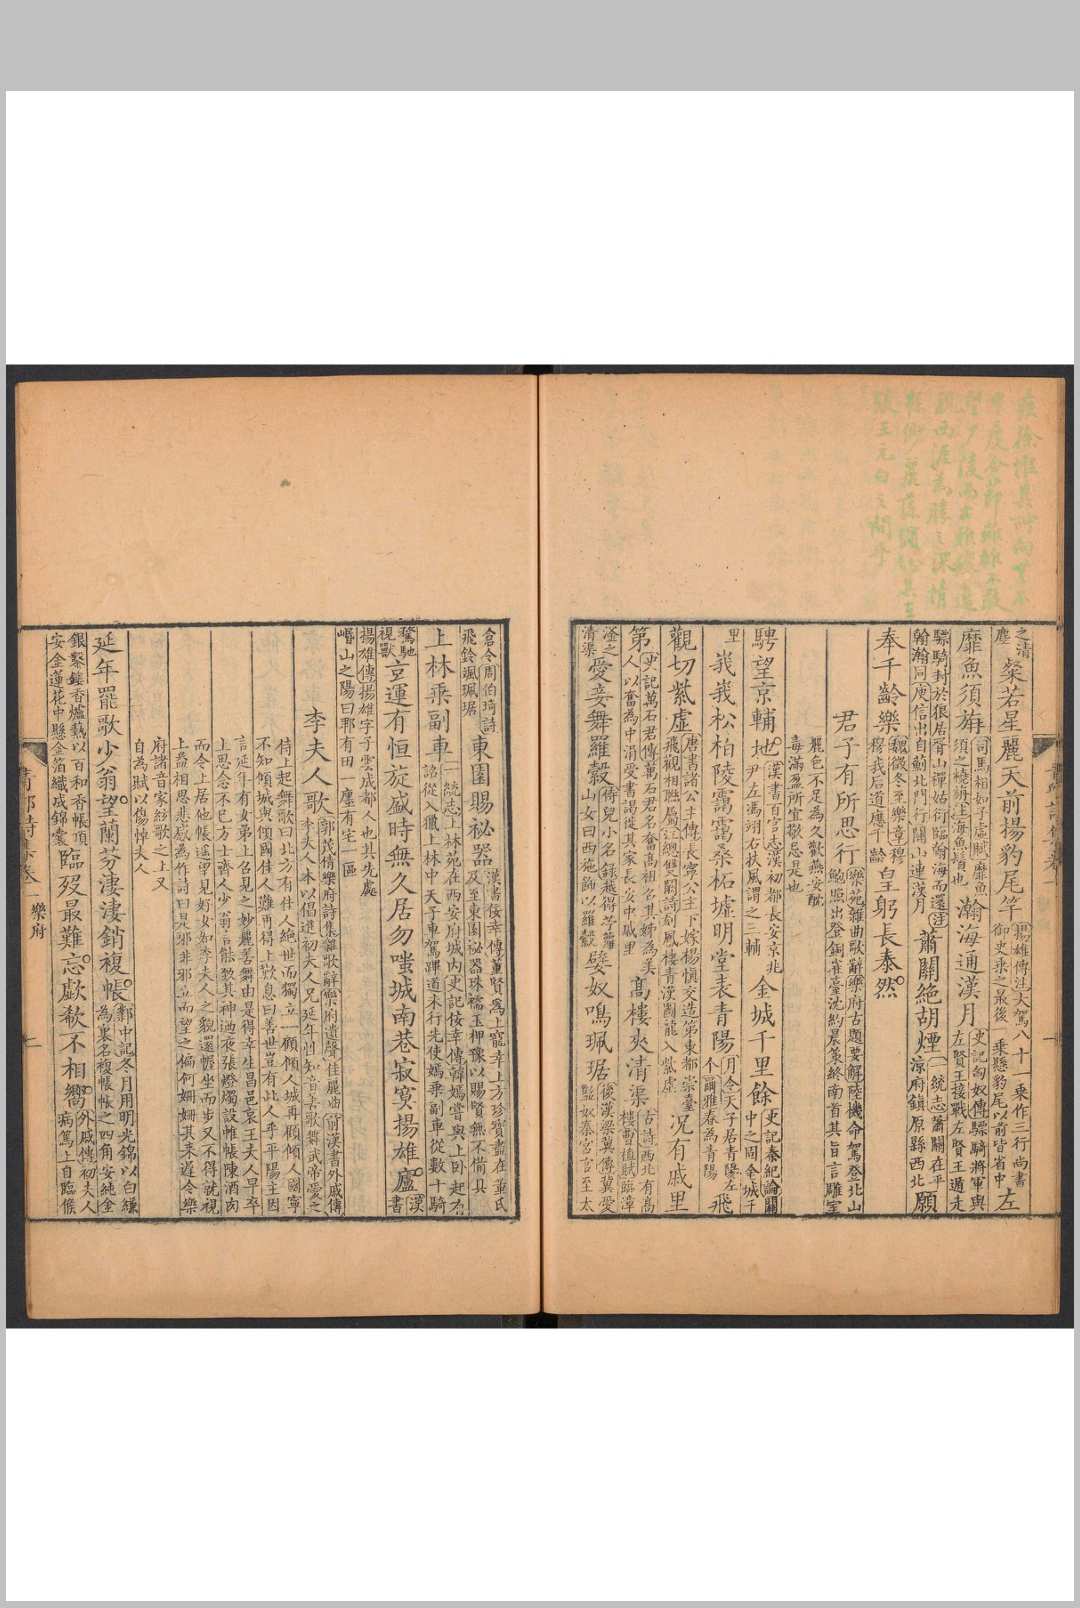 之清
塵
粲若星麗天前揚豹尾竿
揚雄傳注大駕八十一乘作三行尚書
御史乘之最後一乘懸豹尾以前皆省中
左
靡魚須旃
司馬相如子虛賦靡魚
須之橈旃注海魚鬚也
瀚海通漢月
史記匈奴傳驃騎將軍與
左賢王接戰左賢王遁走
驃騎封於狼居胥山禪姑衍臨翰海而還注
翰瀚同庾信出自薊北門行關山連漢月
蕭關絕胡煙
一統志蕭關在平
涼府鎮原縣西北
願
奉千齡樂
魏徵冬至樂章穆
穆我后道應千齡
皇躬長泰然
君子有所思行
樂苑雜曲歌辭樂府古題要解陸機命駕登北山
鮑照出登銅雀臺沈約晨策終南首其旨言雕室
麗色不足為久歡燕安酖
毒滿盈所宜敬忌是也
騁望京輔地
漢書百官志漢初都長安京兆
尹左馮翊右扶風謂之三輔
金城千里餘
史記秦紀論關
中之固金城千
里
峩峩松柏陵靄靄桑柘墟明堂表青陽
月令天子居青陽左
个爾雅春為青陽
飛
觀切紫虛
唐書諸公主傳長寧公主下嫁楊慎交造第東都崇臺
飛觀相聯屬江總雙闕詩刻鳳棲青漢圖龍入紫虛
况有戚里
第
史記萬石君傳萬石君名奮高祖召其姊為美
人以奮為中涓受書謁徙其家長安中戚里
高樓夾清渠
古詩西北有高
樓曹植賦臨漳
滏之
清渠
愛妾舞羅縠
侍兒小名錄越得苧蘿
山女曰西施飾以羅縠
嬖奴鳴珮琚
後漢梁冀傳冀愛
監奴秦宮官至太
倉令周伯琦詩
飛鈴颯珮琚
東園賜祕器
漢書佞幸傳董賢為上寵幸上方珍寶盡在董氏
及至東園祕器珠襦玉柙豫以賜賢無不備具
上林乘副車
一統志上林苑在西安府城內史記佞幸傳韓嫣嘗與上臥起
詔從入獵上林中天子車駕蹕道未行先使嫣乘副車從數十騎
騖馳
視獸
京運有恒旋盛時無久居勿嗤城南巷寂寞揚雄廬
漢
書
揚雄傳揚雄字子雲成都人也其先處
㟭山之陽曰郫有田一㕓有宅一區
李夫人歌
郭茂倩樂府詩集雜歌辭樂府遺聲佳麗曲前漢書外戚傳
李夫人本以倡進初夫人兄延年性知音善歌舞武帝愛之
侍上起舞歌曰北方有佳人絕世而獨立一顧傾人城再顧傾人國寧
不知傾城與傾國佳人難再得上歎息曰善世豈有此人乎平陽主因
言延年有女弟上召見之妙麗善舞由是得幸生昌邑哀王夫人早卒
上思念不已方士齊人少翁言能致其神迺夜張燈燭設帷帳陳酒肉
而令上居他帳遥望見好女如李夫人之貌還幄坐而步又不得就視
上益相思悲感為作詩曰是邪非邪立而望之偏何姍姍其来遲令樂
府諸音家絃歌之上又
自為賦以傷悼夫人
延年罷歌少翁望蘭芬淒淒銷複帳
鄴中記冬月用明光錦以白縑
為裏名複帳帳之四角安純金
銀鑿鏤香爐爇以百和香帳頂
安金蓮花中懸金箔織成錦囊
臨歿最難忘歔欷不相嚮
外戚傳初夫人
病篤上自臨候
青邱詩集卷一 樂府 二